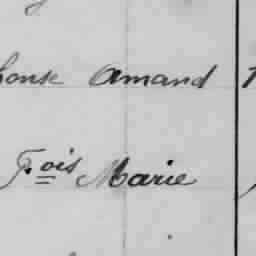 honse Amand
F.ois Marie